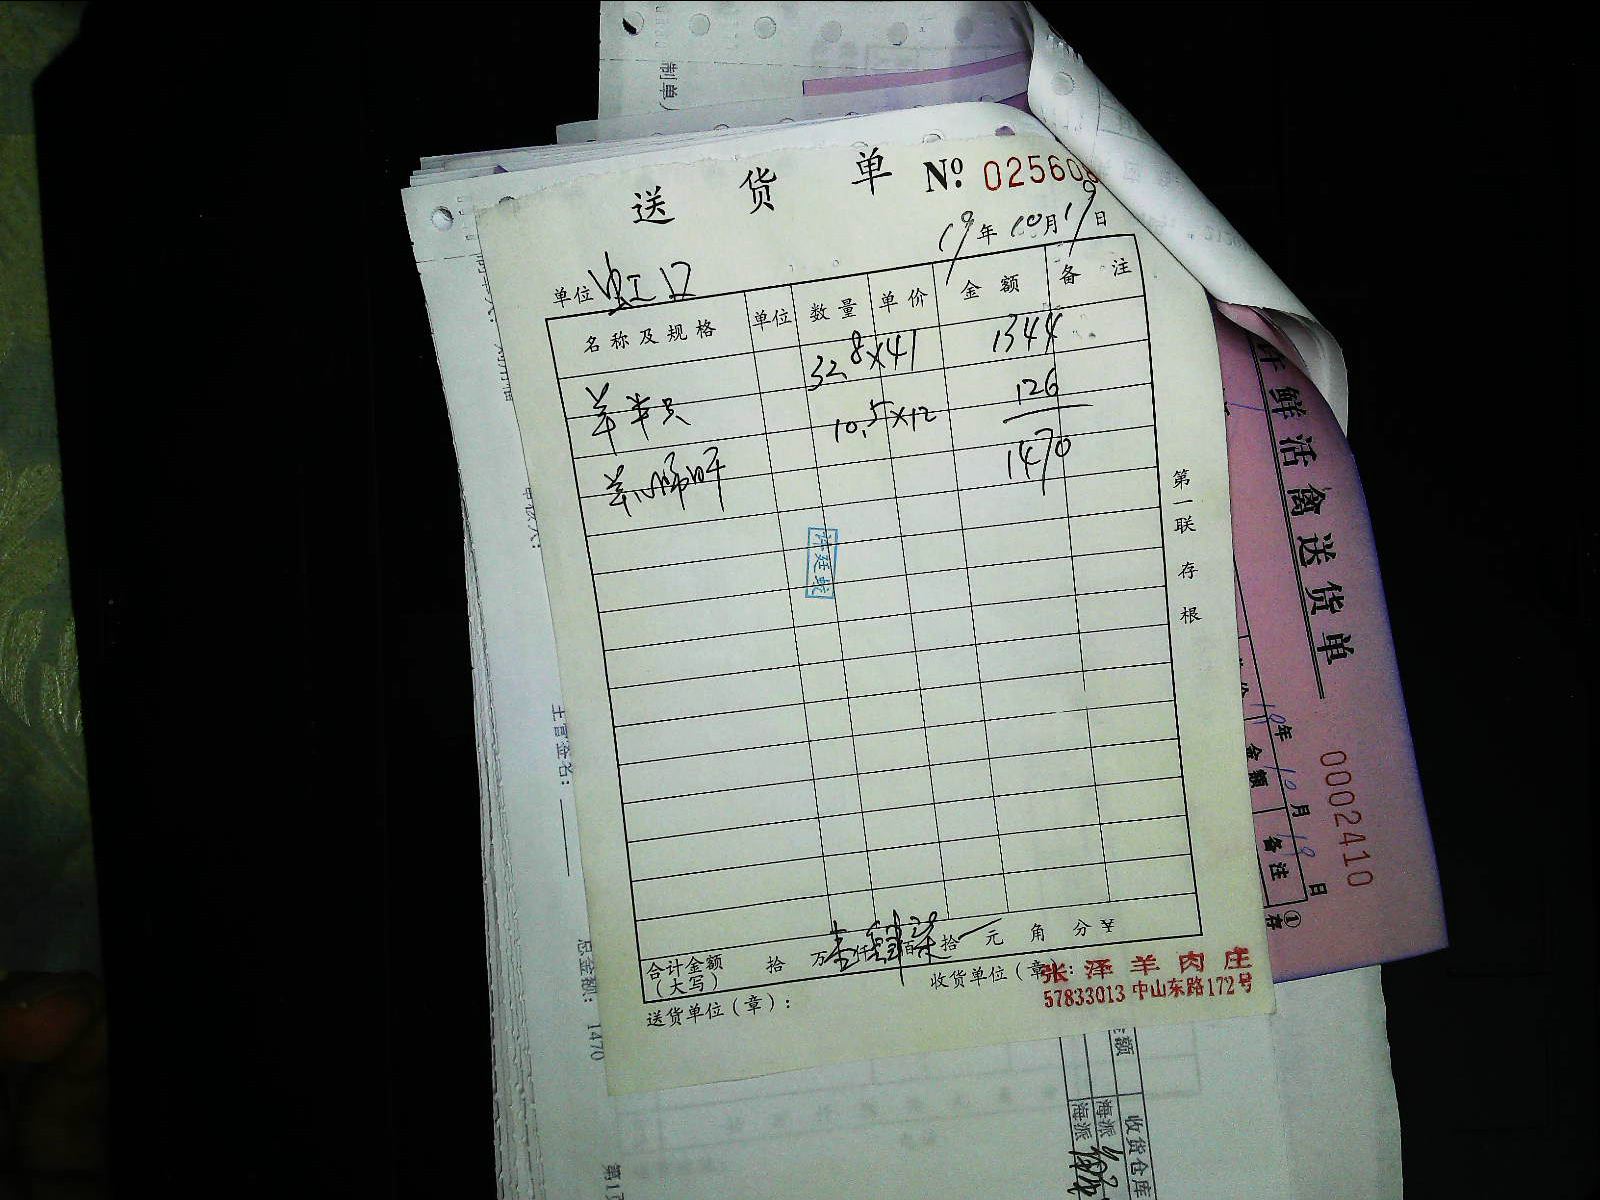 制单
送货单 № 025608
19年10月19日
单位 虹口
名称及规格 单位 数量 单价 金额 备注
羊半只 32.8×41 1344
羊心肺肝 10.5×12 126
1470
第一联 存根
合计金额（大写） 拾 万壹仟肆佰柒拾 元 角 分 ¥
送货单位（章）： 收货单位（章）：
张泽羊肉庄
57833013 中山东路172号
鲜活禽送货单
0002410
19年10月19日
金额 备注
①存
主管签名：
总金额： 1470
第1
额
收货仓库
海派
海派